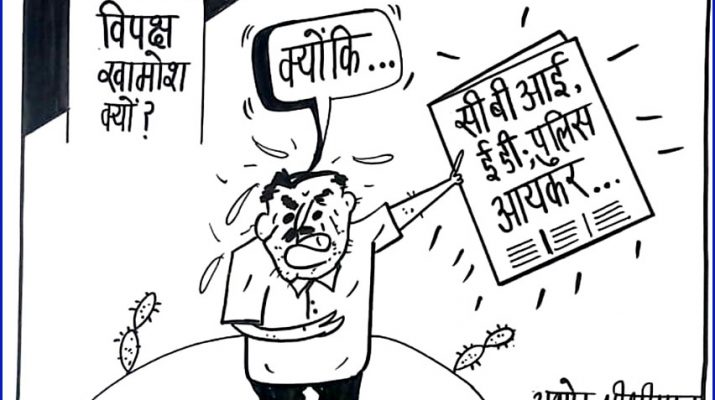 विपक्ष
खामोश
क्यों?
क्योंकि...
सीबीआई,
ईडी, पुलिस
आयकर...